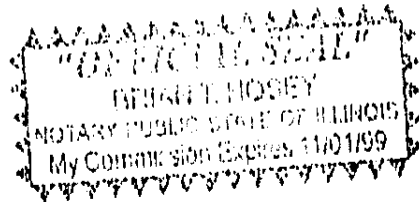 "OFFICIAL SEAL"
BRIAN T. HOSEY
NOTARY PUBLIC STATE OF ILLINOIS
My Commission Expires 11/01/99